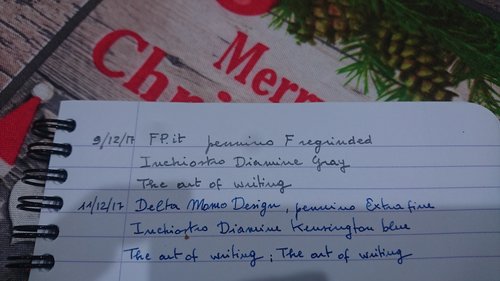 Merry
Chri
9/12/17 FP.it pennino F reginded
Inchiostro Diamine Gray
The art of writing
11/12/17 Delta Momo Design, pennino Extra fine
Inchiostro Diamine Kensington blue
The art of writing; The art of writing